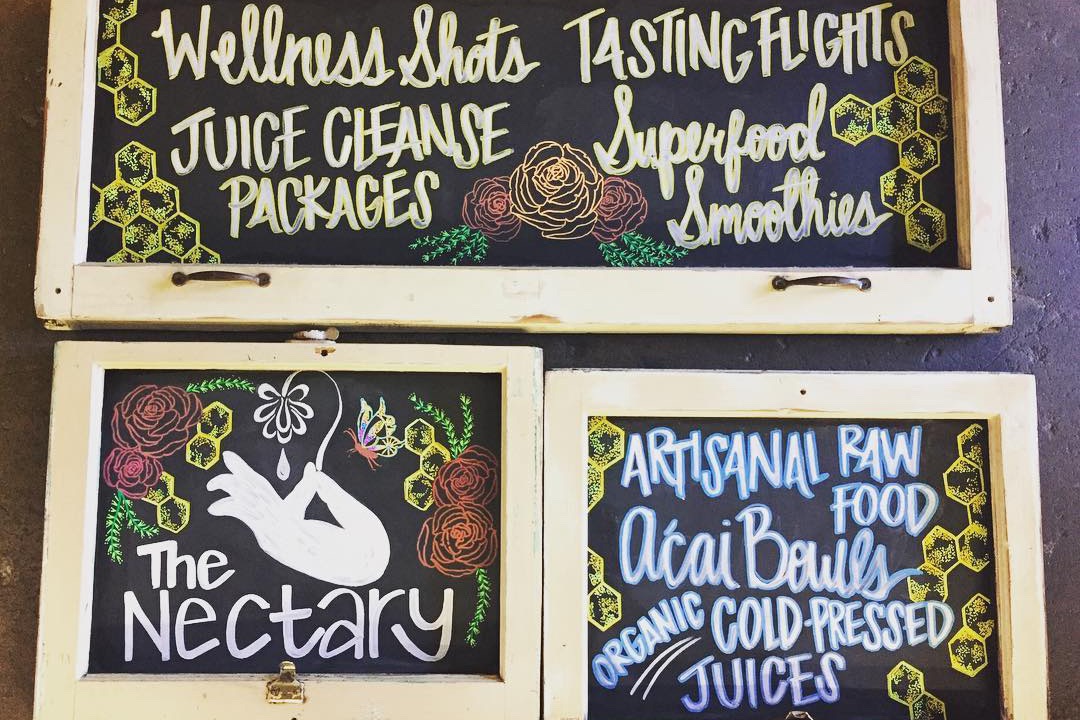 Wellness Shots
JUICE CLEANSE
PACKAGES
TASTING FLIGHTS
Superfood
Smoothies
The
Nectary
ARTISANAL RAW
FOOD
Açai Bowls
ORGANIC COLD-PRESSED
JUICES